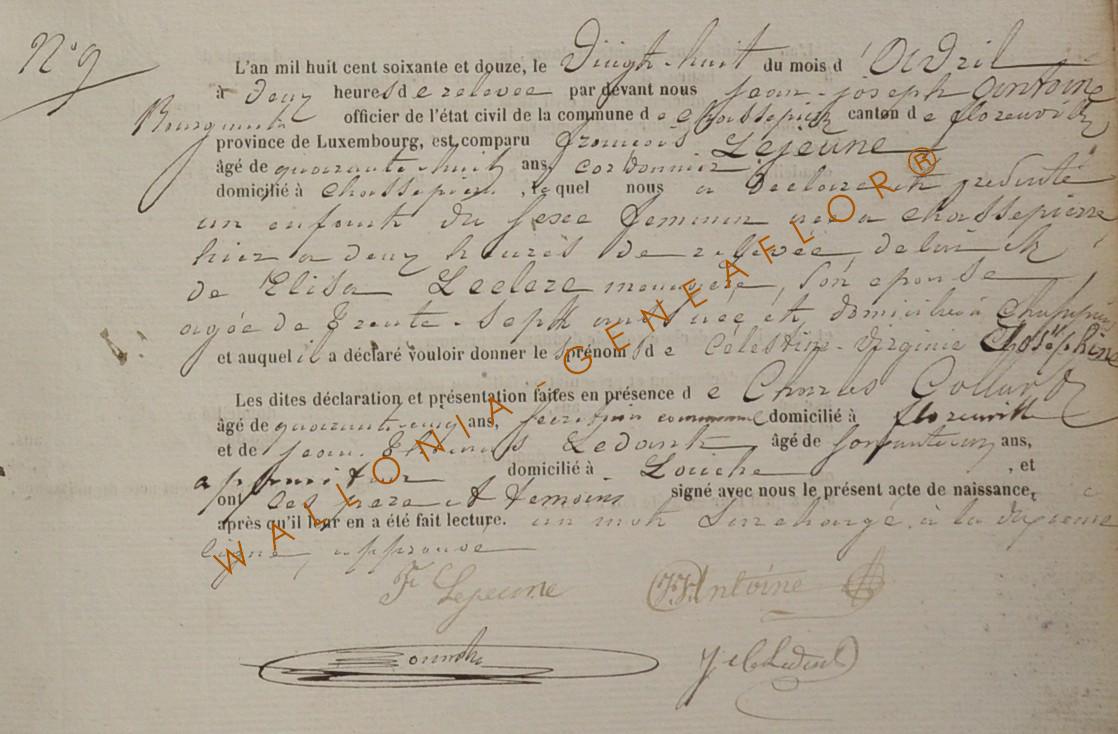 N° 9
L'an mil huit cent soixante et douze, le Vingt-huit du mois d'Avril
à deux heures de relevée par devant nous Jean-Joseph Antoine
Bourgmestre officier de l'état civil de la commune de Chassepierre canton de florenville
province de Luxembourg, est comparu François Lejeune
âgé de quarante-huit ans, cordonnier
domicilié à Chassepierre, lequel nous a déclaré et présenté
un enfant du sexe feminin née a chassepierre
hier a deux heures de relevée, de lui et
de Elisa Leclerc menagere, son epouse
agée de Trente-sept ans née et domiciliée à Chassepierre
et auquel il a déclaré vouloir donner les prénoms de Célestine-Virginie Joséphine
Les dites déclaration et présentation faites en présence de Charles
âgé de ans, communal domicilié à florenville
et de Jean- âgé de ans,
domicilié à , et
ont les pere et temoins signé avec nous le présent acte de naissance,
après qu'il leur en a été fait lecture. un mot surchargé, à la dixieme
ligne, approuvé
F Lejeune JJAntoine
WALLONIA-GENEAFLOR®